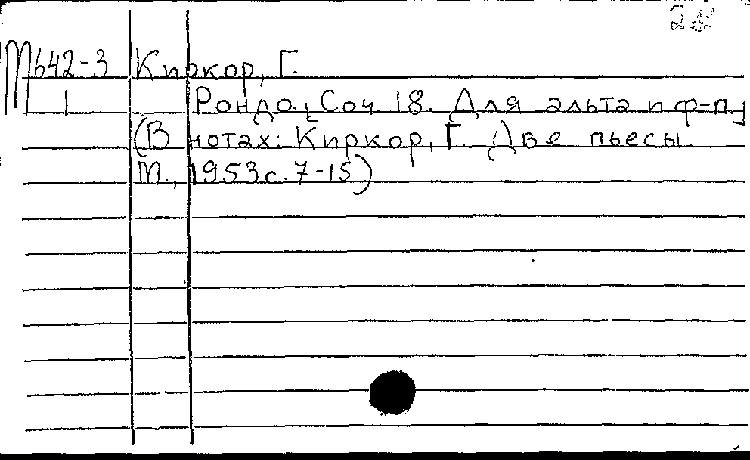 М642-3 Киркор, Г.
1 Рондо. Соч. 18. Для альта и ф-п
(В нотах: Киркор, Г. Две пьесы.
М., 1953 с. 7-15)